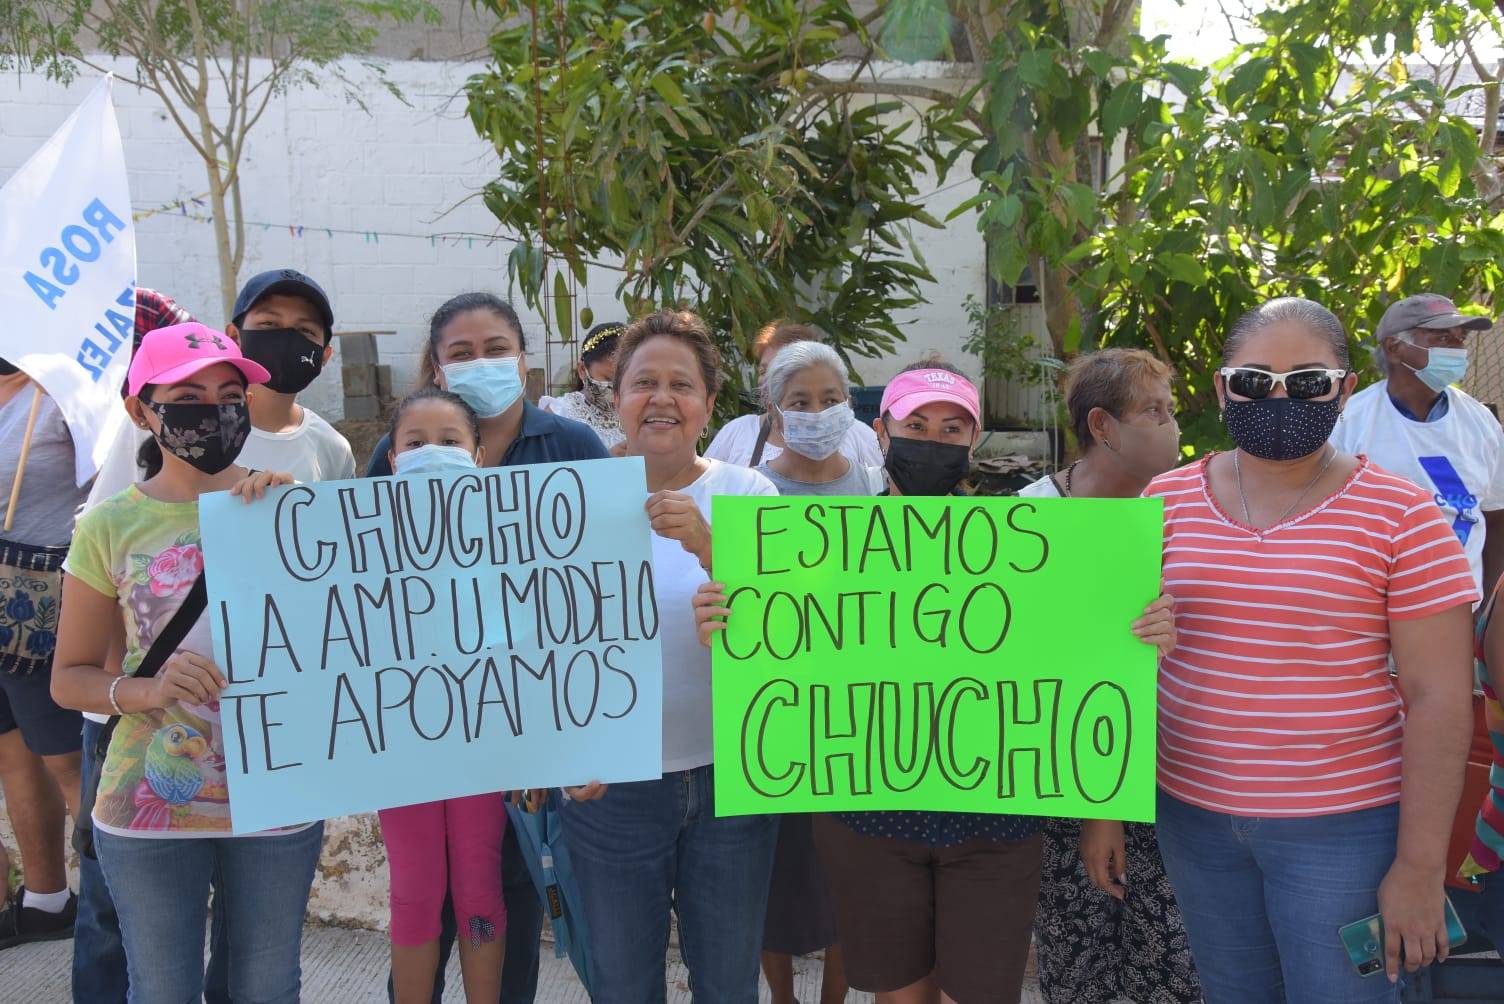 ROSA
CHUCHO
LA AMP. U. MODELO
TE APOYAMOS
ESTAMOS
CONTIGO
CHUCHO
TEXAS